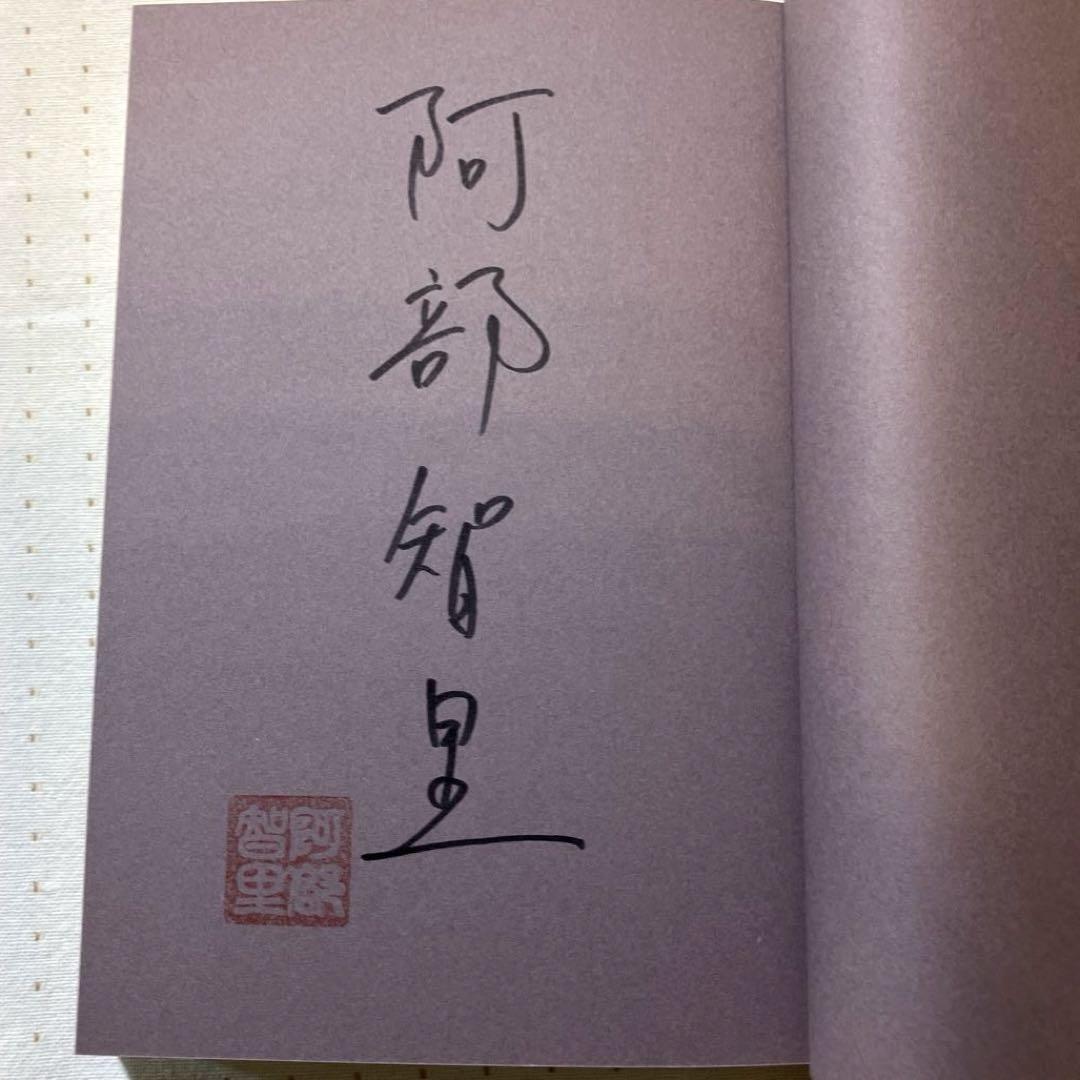 阿部智里
阿部
智里